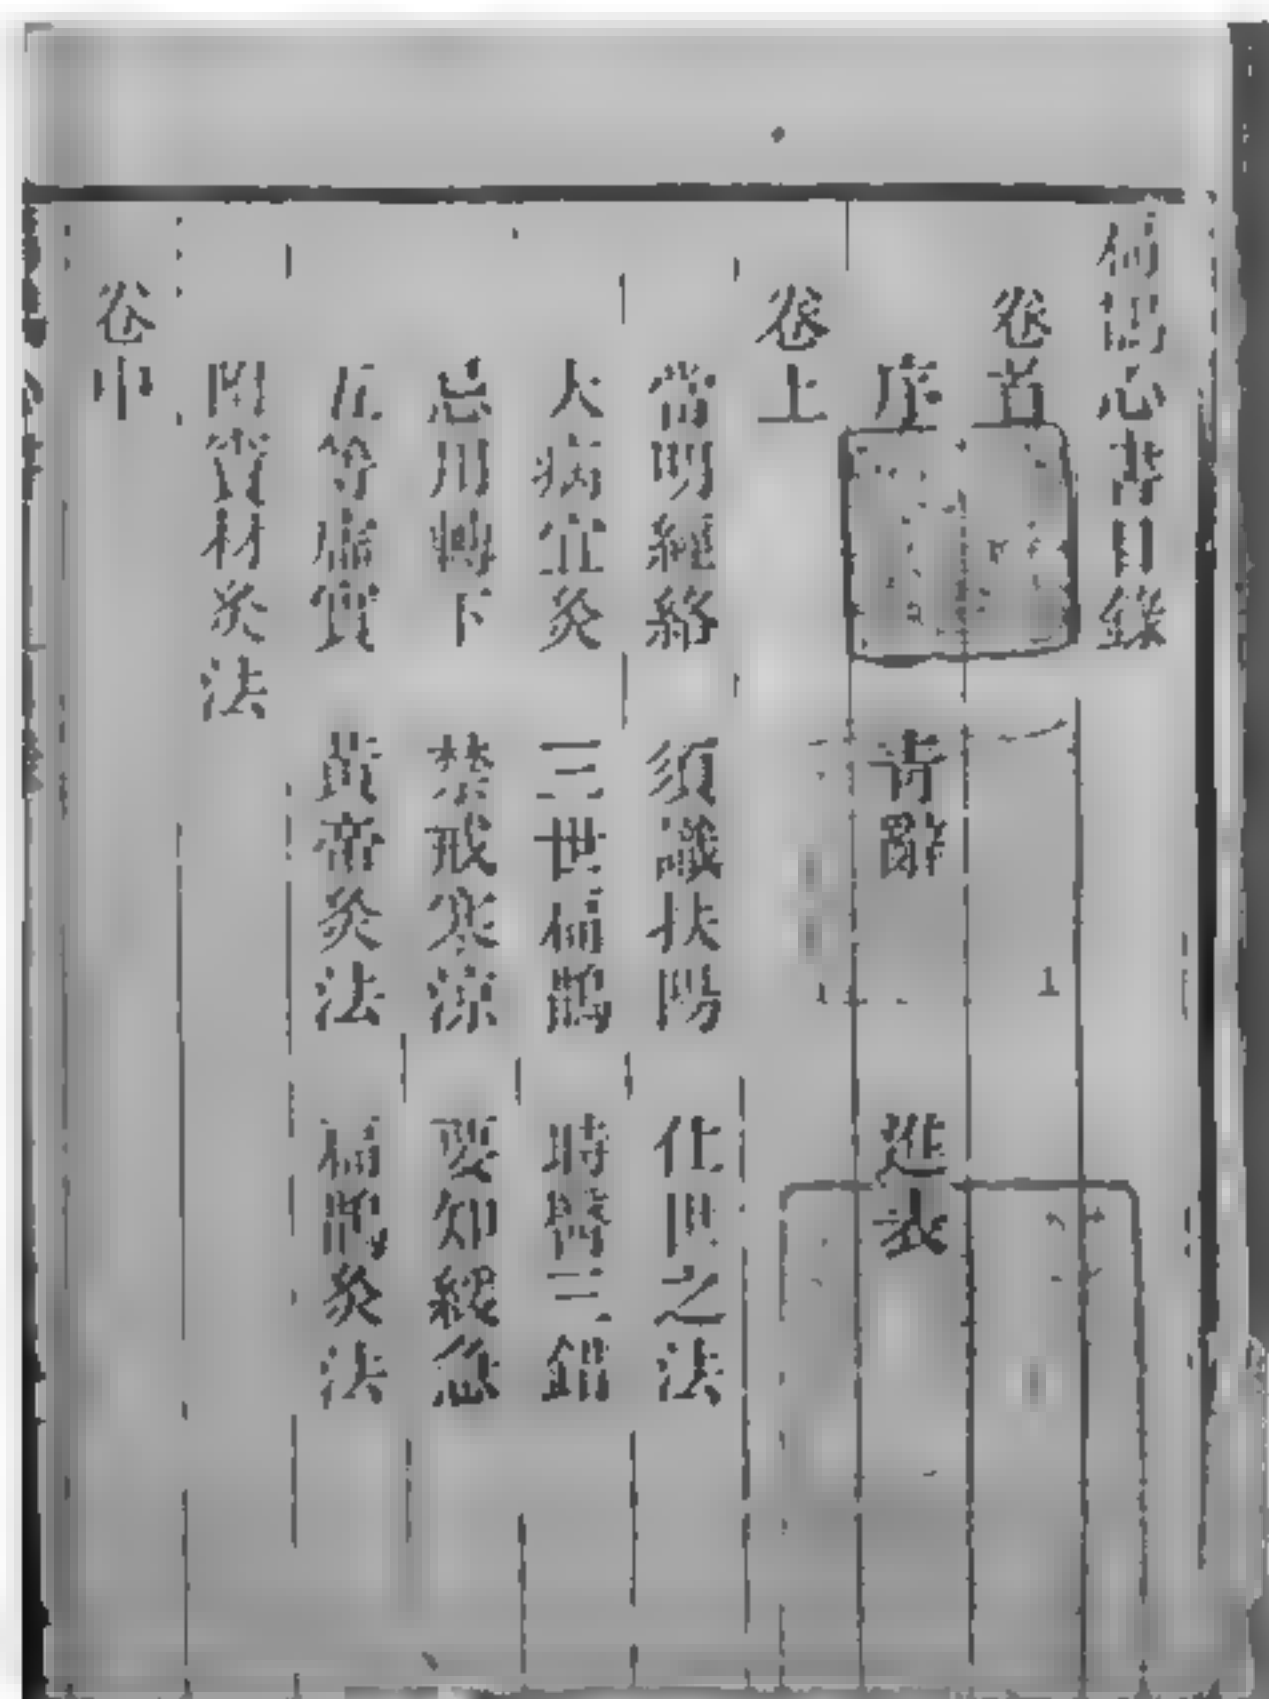 扁鵲心書目錄
卷首
序 青辭 進表
卷上
當明經絡 須識扶陽 住世之法
大病宜灸 三世扁鵲 時醫三錯
忌用轉下 禁戒寒涼 要知緩急
五等虛實 黃帝灸法 扁鵲灸法
竇材灸法
卷中